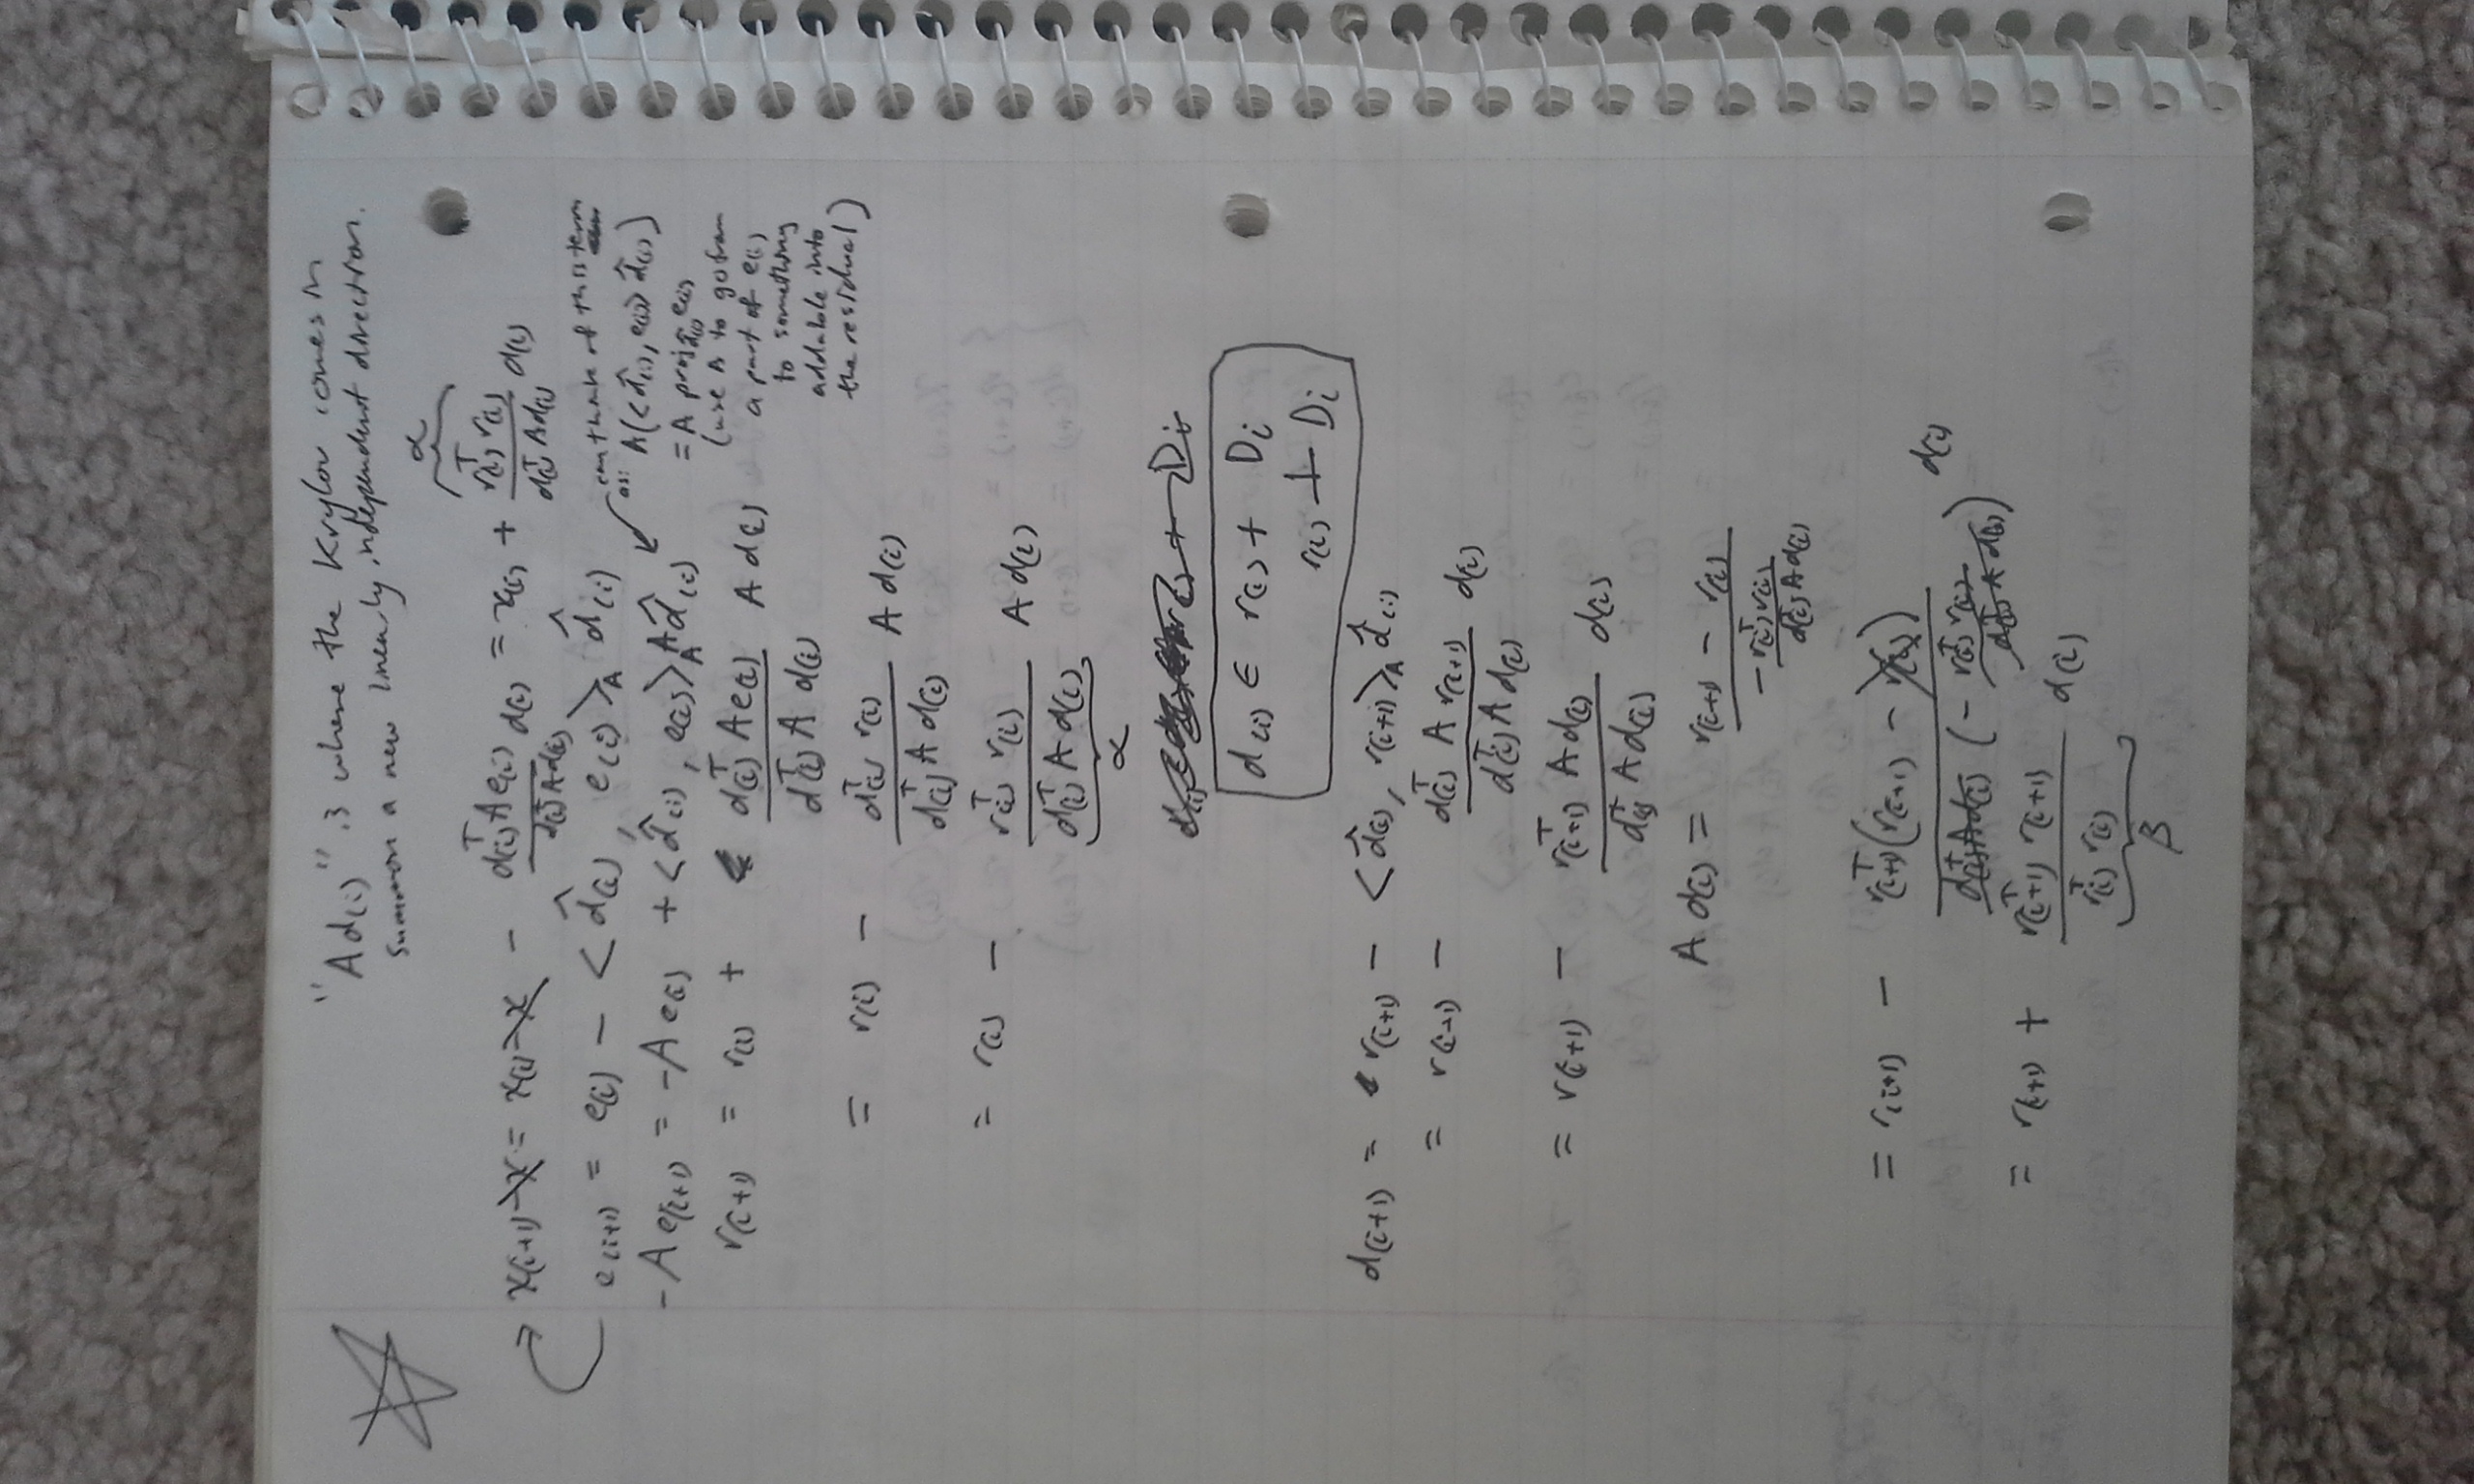 "Ad(i)" is where the Krylov comes in
summon a new linearly independent direction.
α
x(i+1) - x = x(i) - x - d(i)ᵀ A e(i) / d(i)ᵀ A d(i) d(i) = x(i) + r(i)ᵀ r(i) / d(i)ᵀ A d(i) d(i)
e(i+1) = e(i) - < d̂(i), e(i) >_A d̂(i)
-A e(i+1) = -A e(i) + < d̂(i), e(i) >_A A d̂(i)
can think of this term
as:
A(<d̂(i), e(i)> d̂(i))
= A proj_d̂(i) e(i)
(use A to go from
a part of e(i)
to something
addable into
the residual)
r(i+1) = r(i) + d(i)ᵀ A e(i) / d(i)ᵀ A d(i) A d(i)
= r(i) - d(i)ᵀ r(i) / d(i)ᵀ A d(i) A d(i)
= r(i) - r(i)ᵀ r(i) / d(i)ᵀ A d(i) A d(i)
α
d(i) ∈ r(i) + Di
r(i) ⊥ Di
d(i+1) = r(i+1) - < d̂(i), r(i+1) >_A d̂(i)
= r(i+1) - d(i)ᵀ A r(i+1) / d(i)ᵀ A d(i) d(i)
= r(i+1) - r(i+1)ᵀ A d(i) / d(i)ᵀ A d(i) d(i)
A d(i) = r(i+1) - r(i) / - r(i)ᵀ r(i) / d(i)ᵀ A d(i)
= r(i+1) - r(i+1)ᵀ (r(i+1) - r(i)) / d(i)ᵀ A d(i) (- r(i)ᵀ r(i) / d(i)ᵀ A d(i)) d(i)
= r(i+1) + r(i+1)ᵀ r(i+1) / r(i)ᵀ r(i) d(i)
β